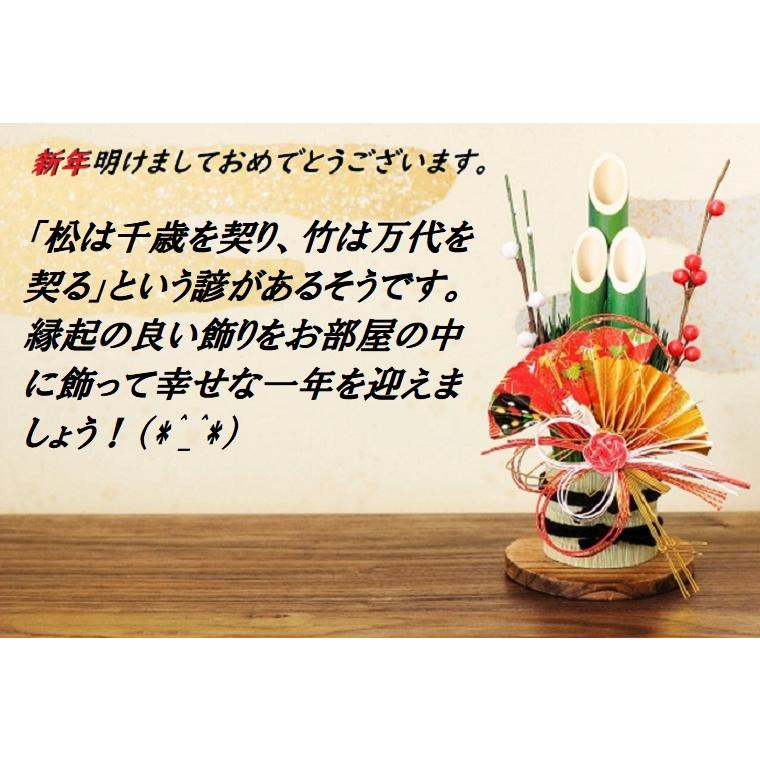 新年明けましておめでとうございます。
「松は千歳を契り、竹は万代を
契る」という諺があるそうです。
縁起の良い飾りをお部屋の中
に飾って幸せな一年を迎えま
しょう！(*^_^*)